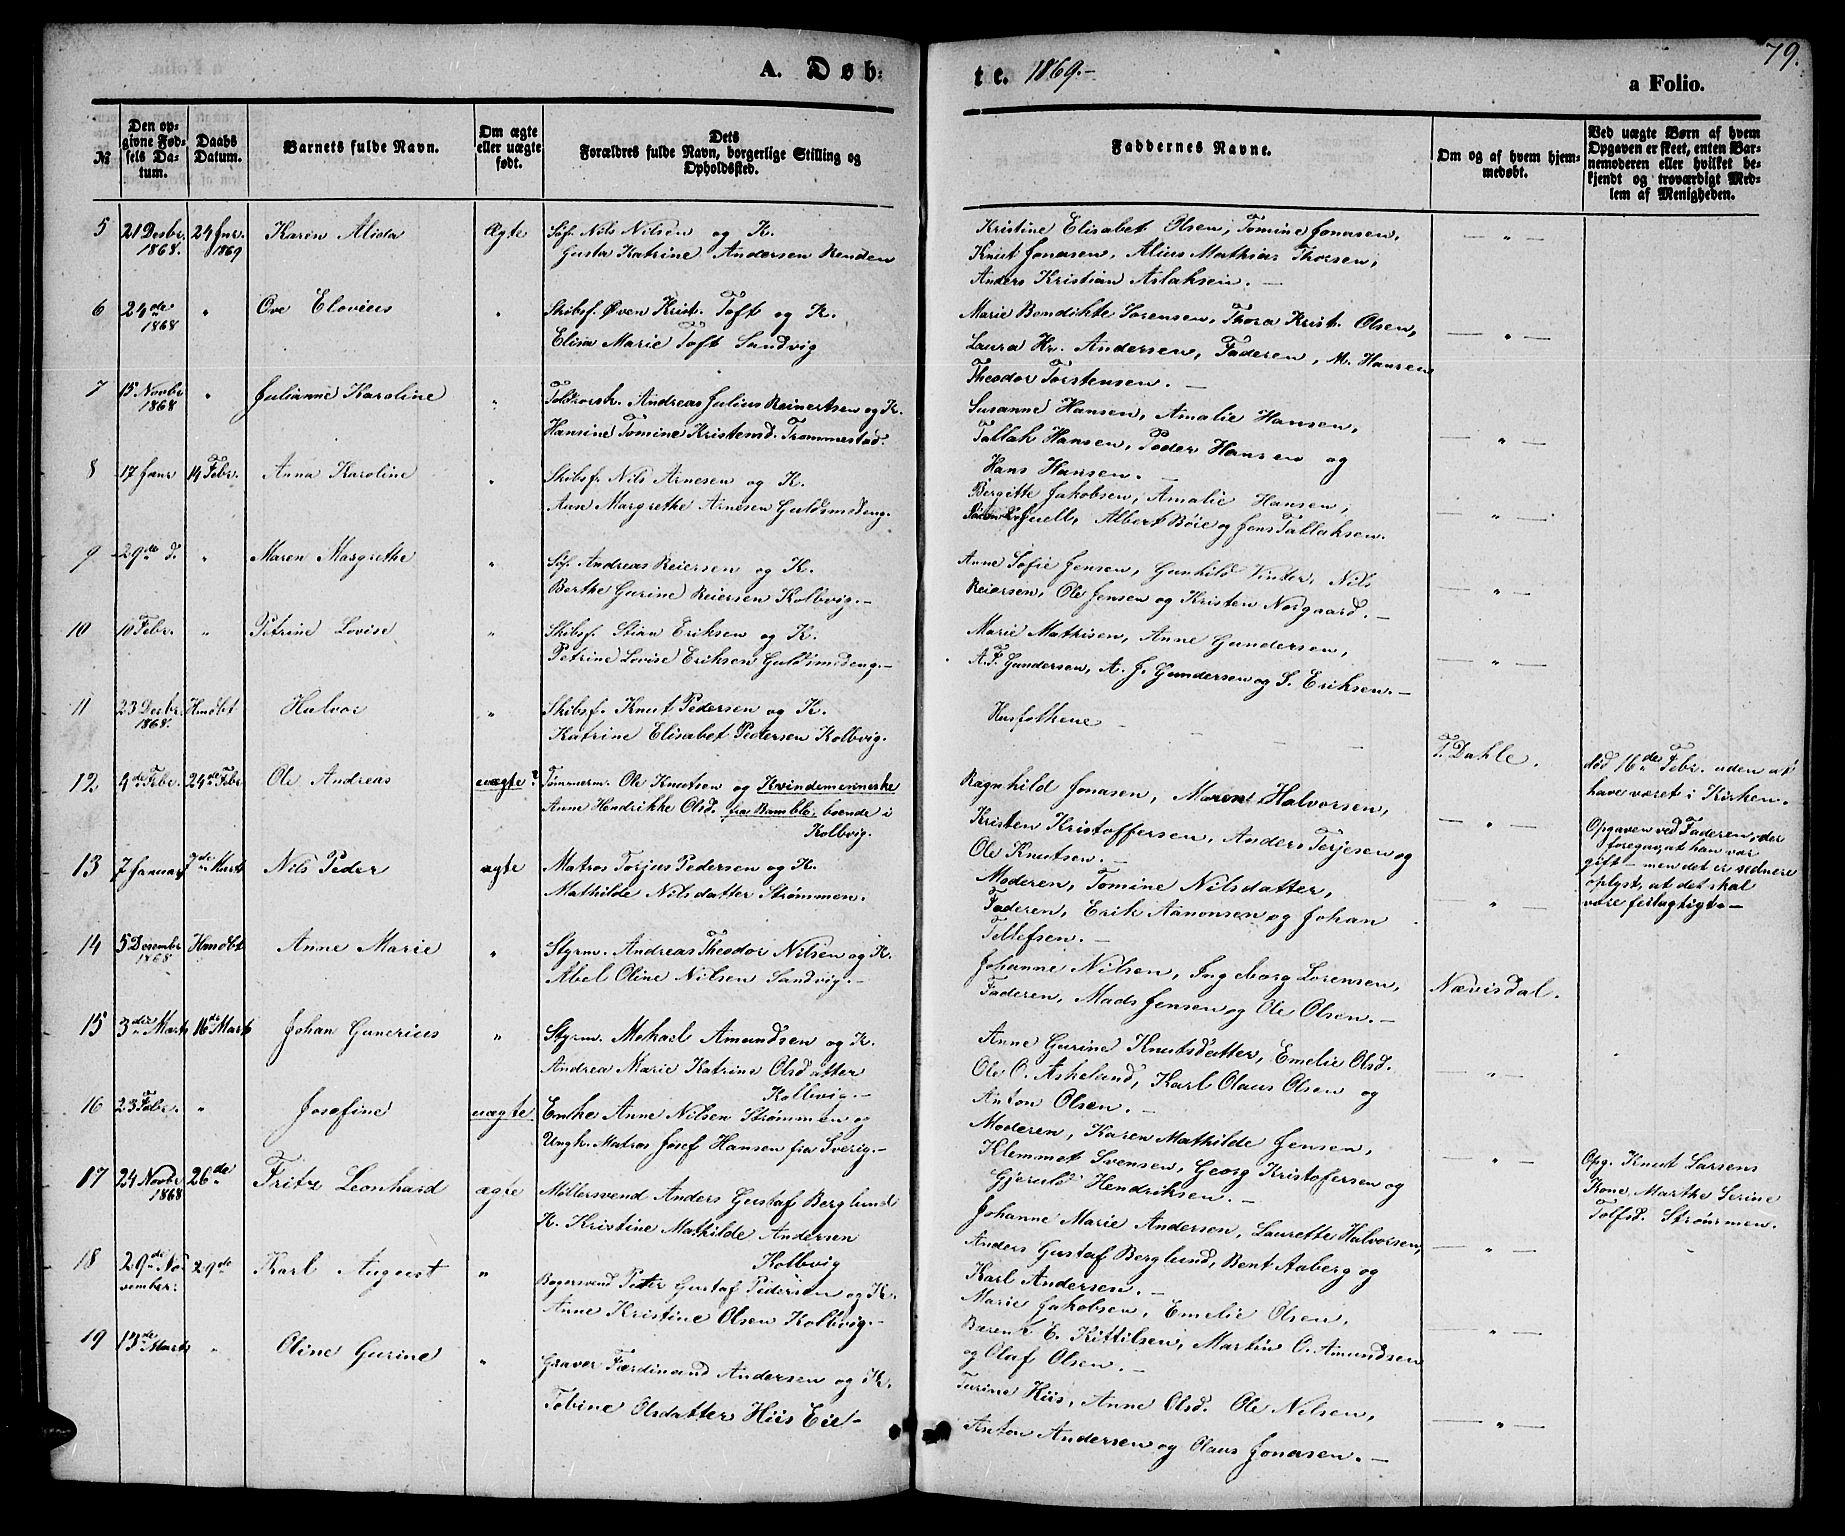 79.
A. Døb-
te. 1869.-
a Folio.
№
Den op-
givne Fød-
sels Da-
tum.
Daabs
Datum.
Barnets fulde Navn.
Om ægte
eller uægte
født.
Dets
Forældres fulde Navn, borgerlige Stilling og
Opholdssted.
Faddernes Navne.
Om og af hvem hjem-
medøbt.
Ved uægte Børn af hvem
Opgaven er skeet, enten Bar-
nemoderen eller hvilket be-
kjendt og troværdigt Med-
lem af Menigheden.
5 21 Desbr. 24 Jnr. Karen Alida Ægte Søf. Nils Nilsen og K.
1868. 1869 Gusta Katrine Andersen Renden
Kristine Elisabet Olsen, Tomine Jonasen,
Knut Jonasen, Alius Mathias Thorsen,
Anders Kristian Aslaksen. —
— " —
6 24de " Ove Elovius " Skibsf. Øven Krist. Toft og K.
1868 Elisa Marie Toft Sandvig
Marie Bendikte Sorensen, Thora Krist. Olsen,
Laura Kr. Andersen, Faderen, M. Hansen
Theodor Torstensen. —
— " —
7 15 Novbr " Julianne Karoline " Andreas Julius Reinertsen og K.
1868 Hansine Tomine Kristensd. Trommestad.
Susanne Hansen, Amalie Hansen,
Tallak Hansen, Peder Hansen og
Hans Hansen. —
— " —
8 17 Janr 14 Febr. Anna Karoline " Skibsf. Nils Arnesen og K.
Ane Margrethe Arnesen Guldsmedeng.
Bergitte Jakobsen, Amalie Hansen,
Juell, Albert Bøie og Jens Tallaksen.
— " —
9 29de d. " Maren Margrethe " Søf. Andreas Reiersen og K.
Berthe Gurine Reiersen Kolbvig. —
Anne Sofie Jensen, Gunhild Vinter, Nils
Reiersen, Ole Jensen og Kristen Norgaard. —
— " —
10 10 Febr. " Petrine Lovise " Skibsf. Stian Eriksen og K.
Petrine Lovise Eriksen Guldsmedeng. —
Marie Mathisen, Anne Gundersen,
A. F. Gundersen, A. J. Gundersen og S. Eriksen. —
— " —
11 23 Desbr. Hmdbt Halvor " Skibsf. Knut Pedersen og K.
1868. Katrine Elisabet Pedersen Kolbvig.
Husfolkene —
T. Dahle.
død 16de Febr. uden at
have været i Kirken.
12 4de Febr. 24de Febr Ole Andreas uægte? Tømmerm. Ole Knutsen og Kvindemenneske
Anne Hendrikke Olsd. fra Bamble, boende i
Kolbvig.
Ragnhild Jonasen, Maren Halvorsen,
Kristen Kristoffersen, Anders Terjesen og
Ole Knutsen. —
— " —
Opgaven ved Faderen, der
foregav, at han var
gift — men det er sednere
oplyst, at det skal
være feilagtigt. —
13 7 Januar 7de Marts Nils Peder ægte Matros Torjus Pedersen og K.
Mathilde Nilsdatter Strømmen.
Moderen, Tomine Nilsdatter,
Faderen, Erik Aanonsen og Johan
Tellefsen. —
— " —
14 5 Desember Hmdbt Anne Marie " Styrm. Andreas Theodor Nilsen og K.
1868 Abel Oline Nilsen Sandvig. —
Johanne Nilsen, Ingeborg Lorensen,
Faderen, Mads Jensen og Ole Olsen. —
Nævisdal.
15 3die Marts 16de Marts Johan Gunerius " Styrm. Mekael Amundsen og K.
Andrea Marie Katrine Olsdatter
Kolbvig. —
Anne Gurine Knutsdatter, Emelie Olsd.
Ole O. Askeland, Karl Olaus Olsen og
Anton Olsen. —
— " —
16 23 Febr. " Josefine uægte Enke Anne Nilsen Strømmen og
Ungk. Matros Josef Hansen fra Sverig. —
Moderen, Karen Mathilde Jensen,
Klemmet Svensen, Georg Kristofersen og
Gjeruld Hendriksen. —
— " —
Opg. Knut Larsens
Kone, Marthe Serine
Tolfsd. Strømmen.
17 24 Novbr 26de Fritz Leonhard ægte Møllersvend Anders Gustaf Berglund
1868 K. Kristine Mathilde Andersen
Kolbvig
Johanne Marie Andersen, Laurette Halvorsen,
Anders Gustaf Berglund, Bent Aaberg og
Karl Andersen. —
— " —
18 29de No- 29de Karl August " Bagersvend Peter Gustaf Pedersen og K.
vember. Anne Kristine Olsen Kolbvig. —
Marie Jakobsen, Emelie Olsen,
Barent E. Kittilsen, Martin O. Amundsen
og Olaf Olsen. —
— " —
19 13de Marts " Oline Gurine " Graver Færdinand Andersen og K.
Tobine Olsdatter Hiis Eie —
Turine Hiis, Anne Olsd. Ole Nilsen,
Anton Andersen og Olaus Jonasen. —
— " —